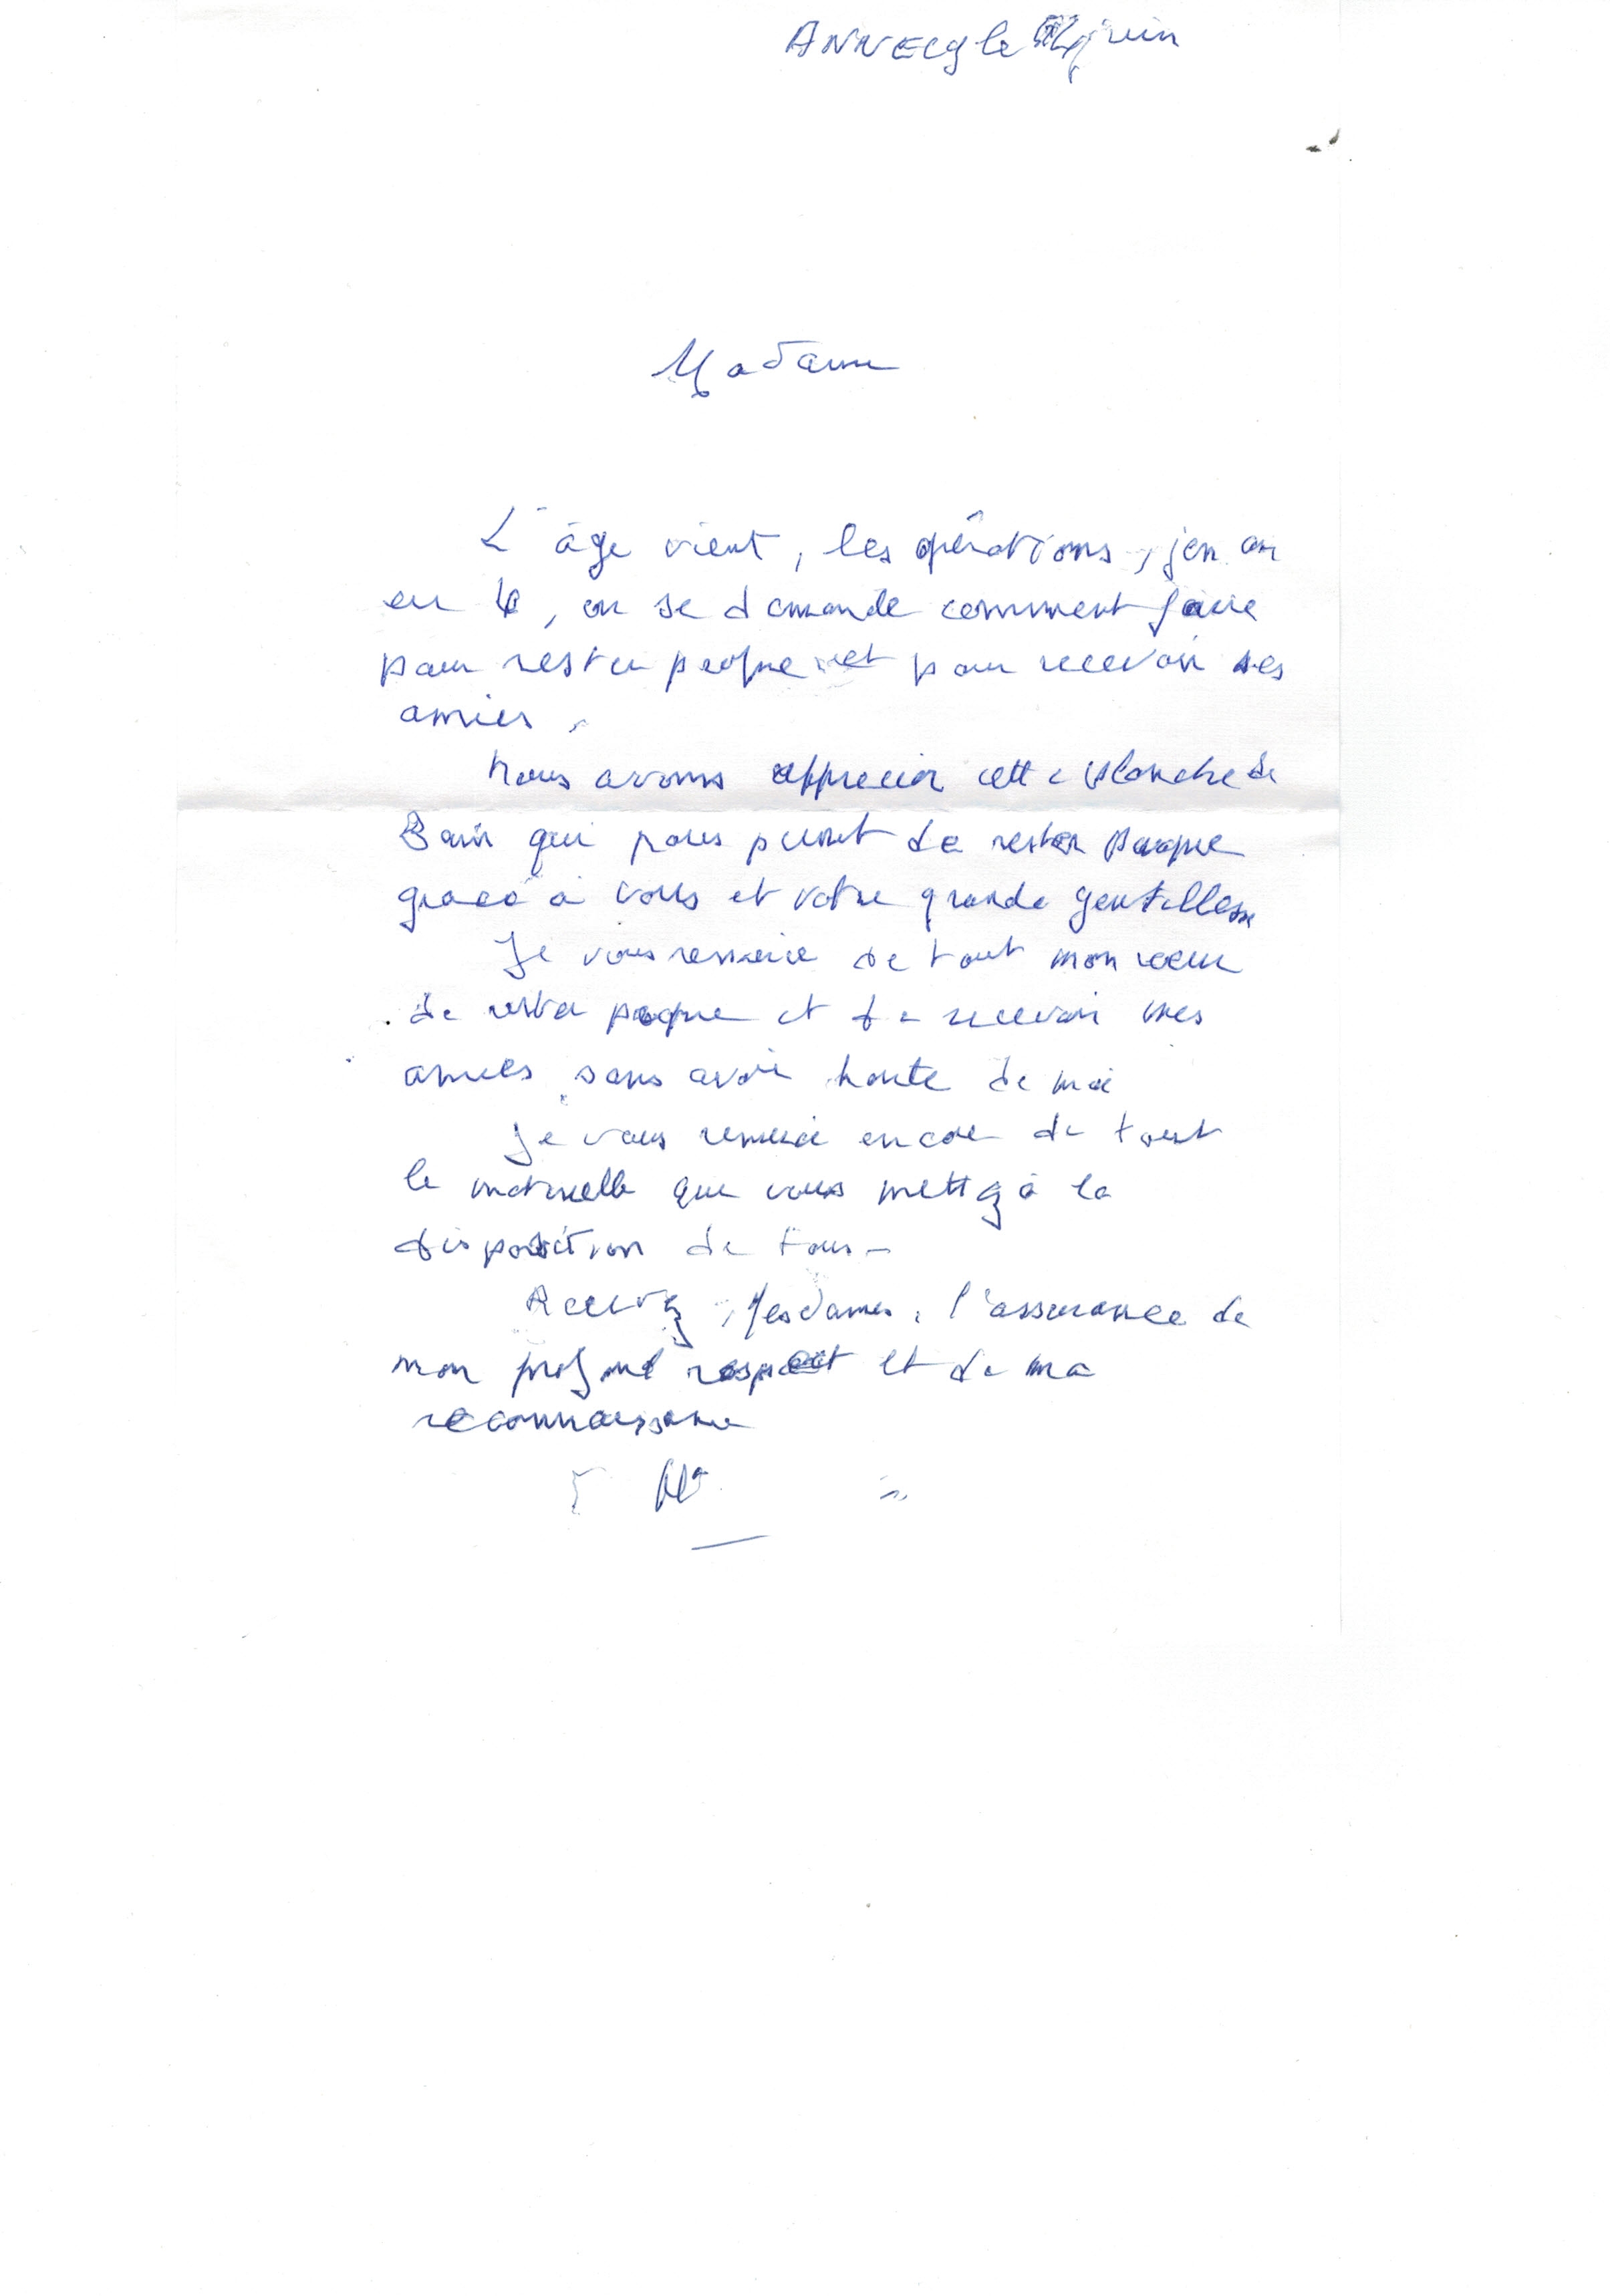 ANNECY le juin
Madame
L'âge vient, les opérations, j'en ai
eu 4, on se demande comment faire
pour rester propre et pour recevoir ses
amies.
Nous avons apprecier cette planche de
Bain qui nous permet de rester propre
grace à vous et votre grande gentillesse
Je vous remercie de tout mon coeur
de rester propre et de recevoir mes
amies sans avoir honte de moi
Je vous remercie encore de tout
le materielle que vous mettez à la
disposition de tous -
Recevez, Mesdames, l'assurance de
mon profond respect et de ma
reconnaissance